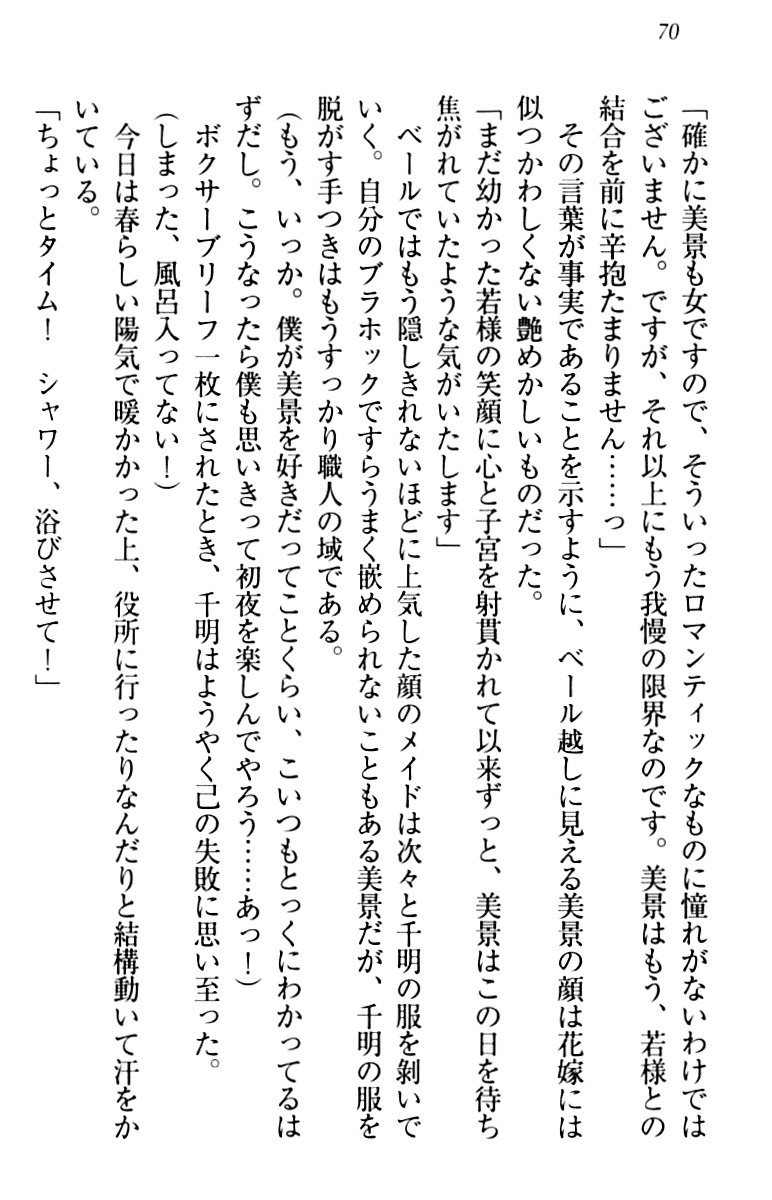 70
「確かに美景も女ですので、そういったロマンティックなものに憧れがないわけでは
ございません。ですが、それ以上にもう我慢の限界なのです。美景はもう、若様との
結合を前に辛抱たまりません……っ」
その言葉が事実であることを示すように、ベール越しに見える美景の顔は花嫁には
似つかわしくない艶めかしいものだった。
「まだ幼かった若様の笑顔に心と子宮を射貫かれて以来ずっと、美景はこの日を待ち
焦がれていたような気がいたします」
ベールではもう隠しきれないほどに上気した顔のメイドは次々と千明の服を剝いで
いく。自分のブラホックですらうまく嵌められないこともある美景だが、千明の服を
脱がす手つきはもうすっかり職人の域である。
（もう、いっか。僕が美景を好きだってことくらい、こいつもとっくにわかってるは
ずだし。こうなったら僕も思いきって初夜を楽しんでやろう……あっ！）
ボクサーブリーフ一枚にされたとき、千明はようやく己の失敗に思い至った。
（しまった、風呂入ってない！）
今日は春らしい陽気で暖かかった上、役所に行ったりなんだりと結構動いて汗をか
いている。
「ちょっとタイム！　シャワー、浴びさせて！」